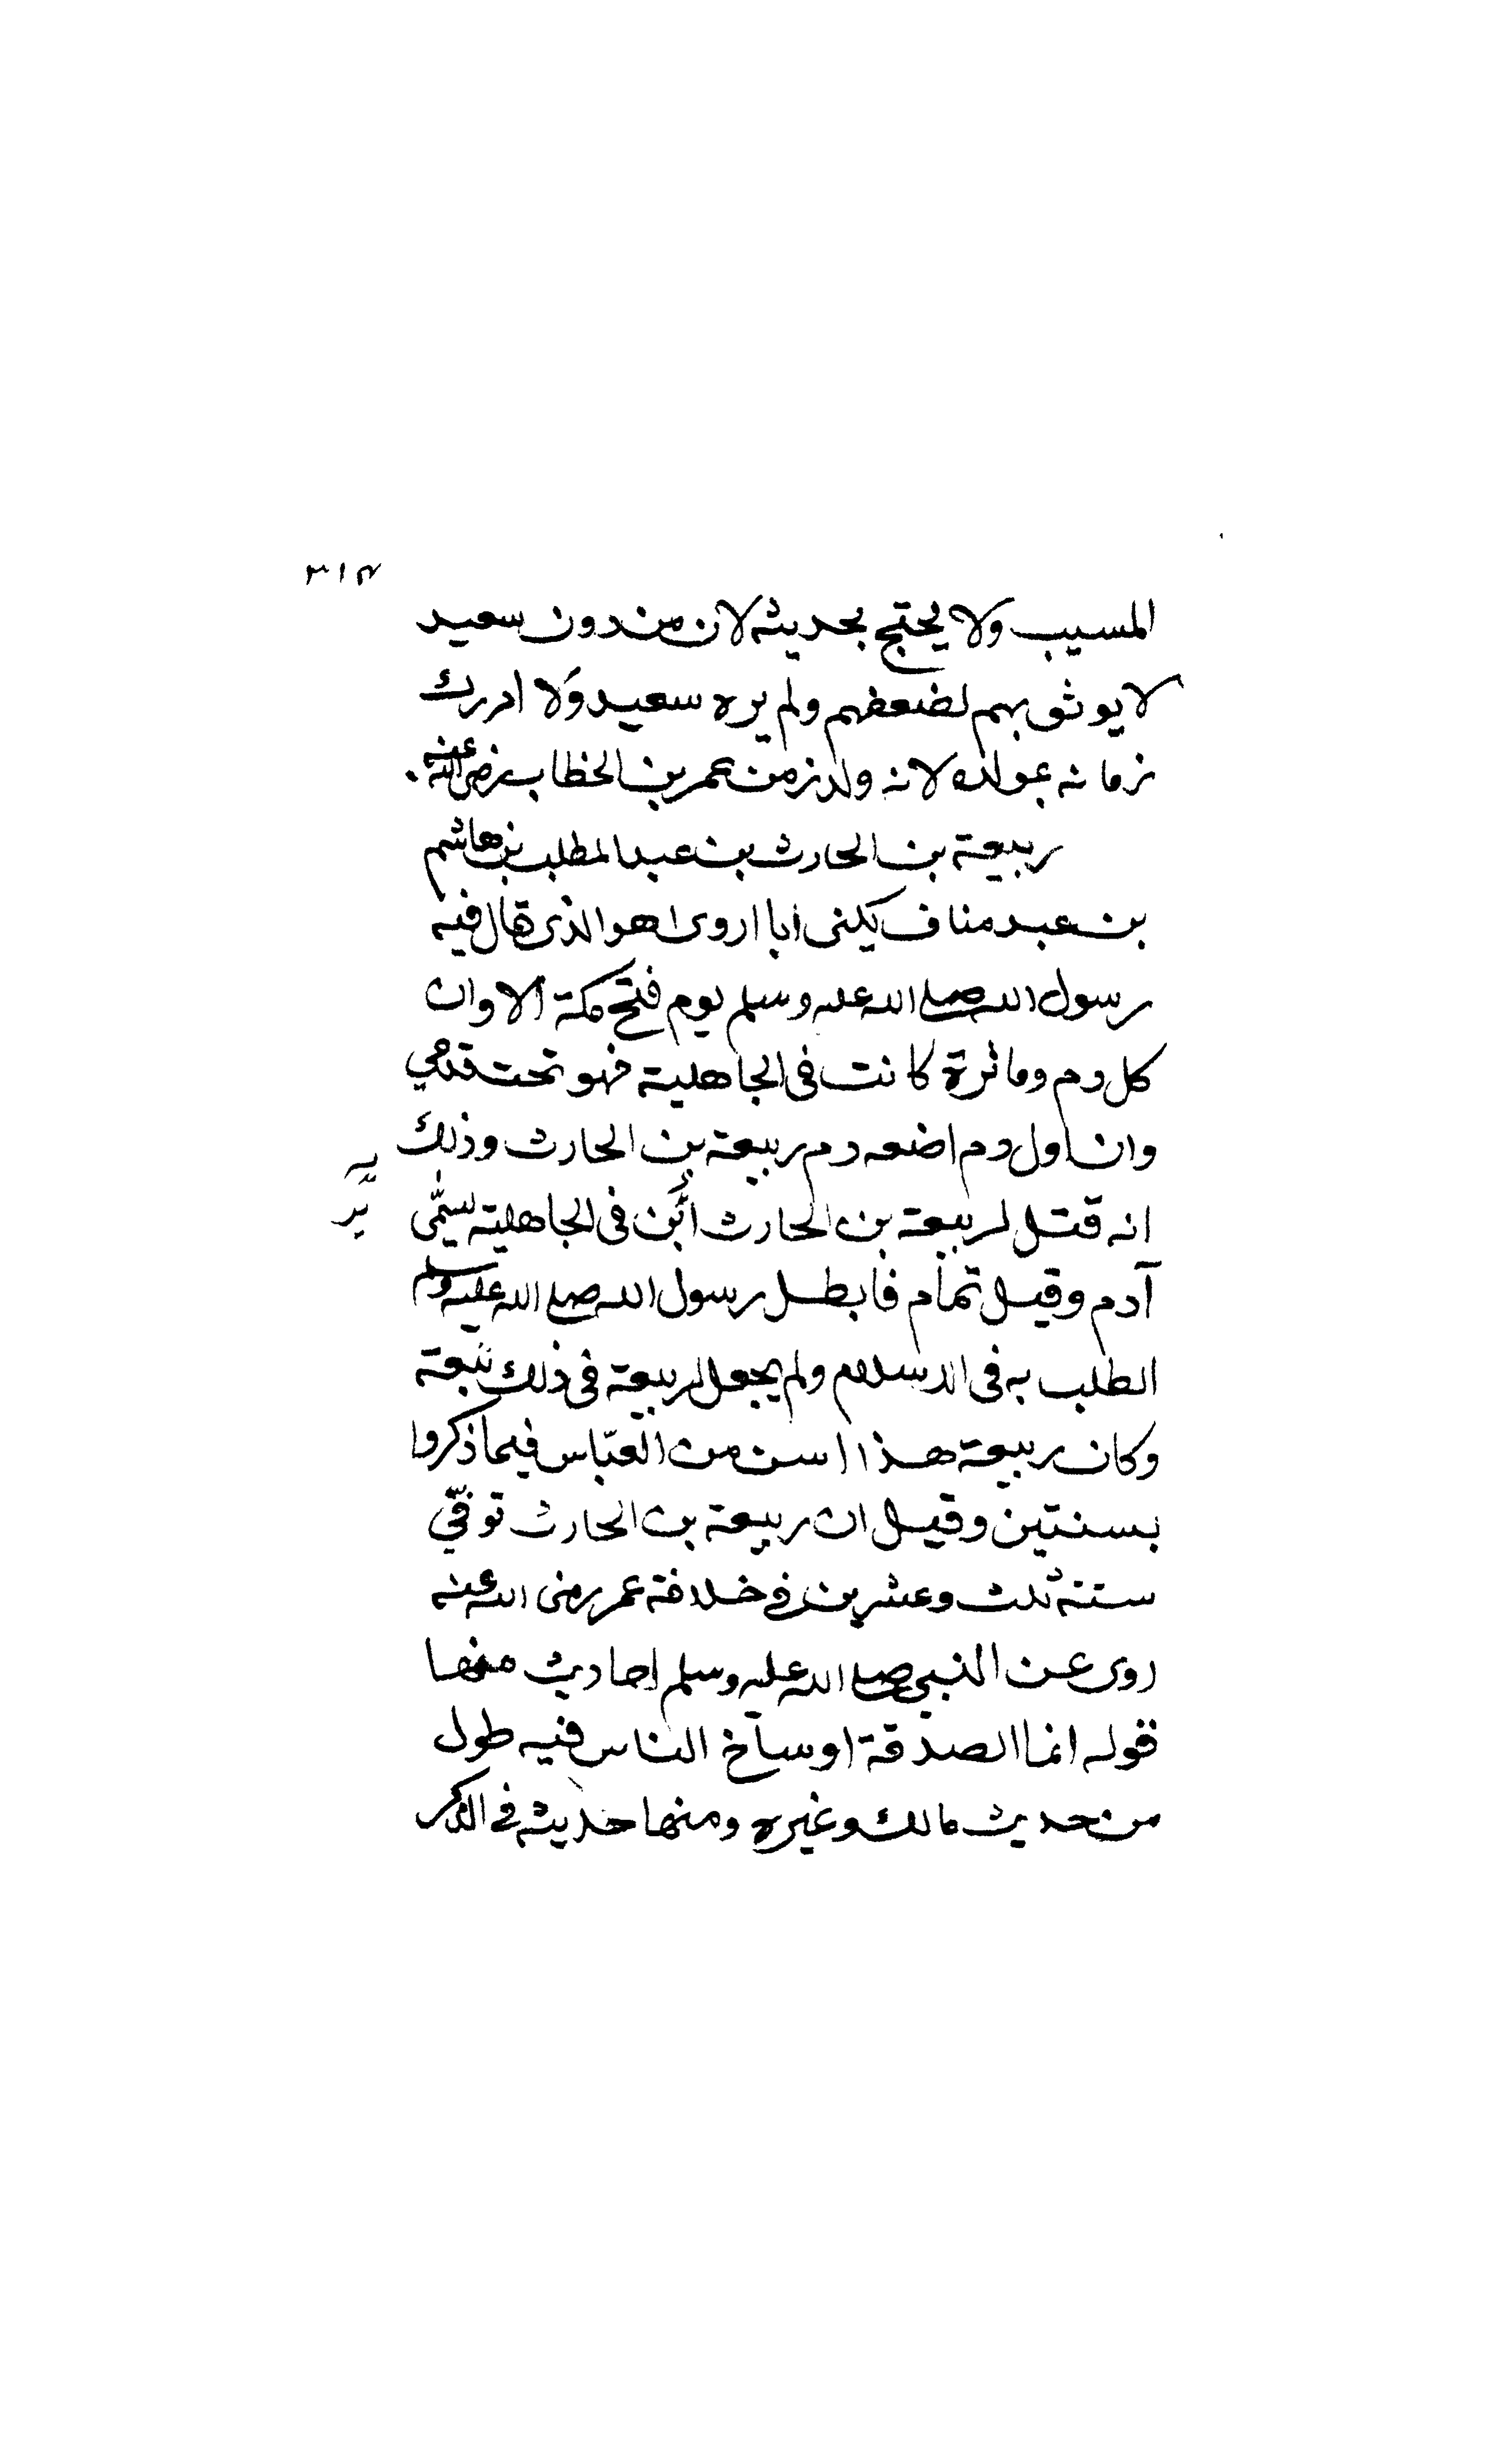 ٣١٤
المسيب ولا يحتج بحديثه لان من دون سعيد
لا يوثق بهم لضعفهم ولم يره سعيد ولا ادرك
زمانه بمولده لانه ولد زمن عمر بن الخطاب رضى الله عنه
ربيعة بن الحارث بن عبد المطلب بن هاشم
بن عبد مناف يكنى ابا اروى هو الذى قال فيه
رسول الله صلى الله عليه وسلم يوم فتح مكة الا وان
كل دم وماثرة كانت فى الجاهلية فهو تحت قدمي
وان اول دم اضعه دم ربيعة بن الحارث وذلك
انه قتل لربيعة بن الحارث ابن فى الجاهلية يسمى
آدم وقيل تمام فابطل رسول الله صلى الله عليه وسلم
الطلب به فى الاسلام ولم يجعل لربيعة فى ذلك تبعة
وكان ربيعة هذا اسن من العباس فيما ذكروا
بسنتين وقيل ان ربيعة بن الحارث توفي
سنة ثلث وعشرين في خلافة عمر رضى الله عنه
روى عن النبي صلى الله عليه وسلم احاديث منها
قوله انما الصدقة اوساخ الناس فيه طول
من حديث مالك وغيره ومنها حديثه في الذكر